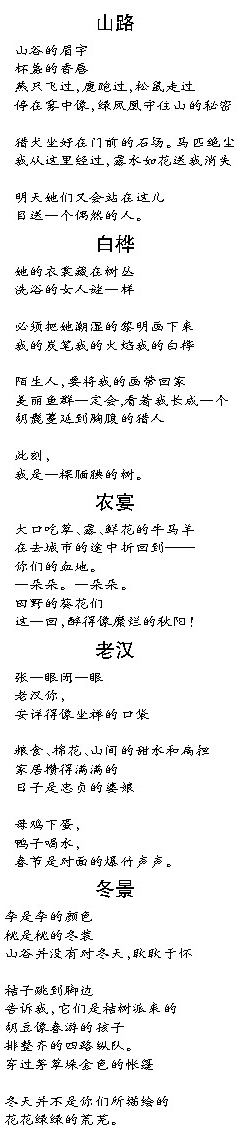 山路
山谷的眉宇
杯盏的香唇
燕只飞过,鹿跑过,松鼠走过
停在雾中像,绿凤凰守住山的秘密
猎犬坐好在门前的石场。马匹绝尘
我从这里经过,露水如花送我消失
明天她们又会站在这儿
目送一个偶然的人。
白桦
她的衣裳藏在树丛
洗浴的女人谜一样
必须把她潮湿的黎明画下来
我的炭笔我的火焰我的白桦
陌生人,要将我的画带回家
美丽鱼群一定会,看着我长成一个
胡髭蔓延到胸腹的猎人
此刻,
我是一棵腼腆的树。
农宴
大口吃草、露、鲜花的牛马羊
在去城市的途中折回到——
你们的血地。
一朵朵。一朵朵。
田野的葵花们
这一回,醉得像糜烂的秋阳!
老汉
张一眼闭一眼
老汉你,
安详得像坐禅的口袋
粮食、棉花、山间的甜水和扁担
家居攒得满满的
日子是忠贞的婆娘
母鸡下蛋,
鸭子喝水,
春节是对面的爆竹声声。
冬景
李是李的颜色
桃是桃的冬装
山谷并没有对冬天,耿耿于怀
桔子跳到脚边
告诉我,它们是桔树派来的
胡豆像春游的孩子
排整齐的四路纵队。
穿过茅草垛金色的帐篷
冬天并不是你们所描绘的
花花绿绿的荒芜。